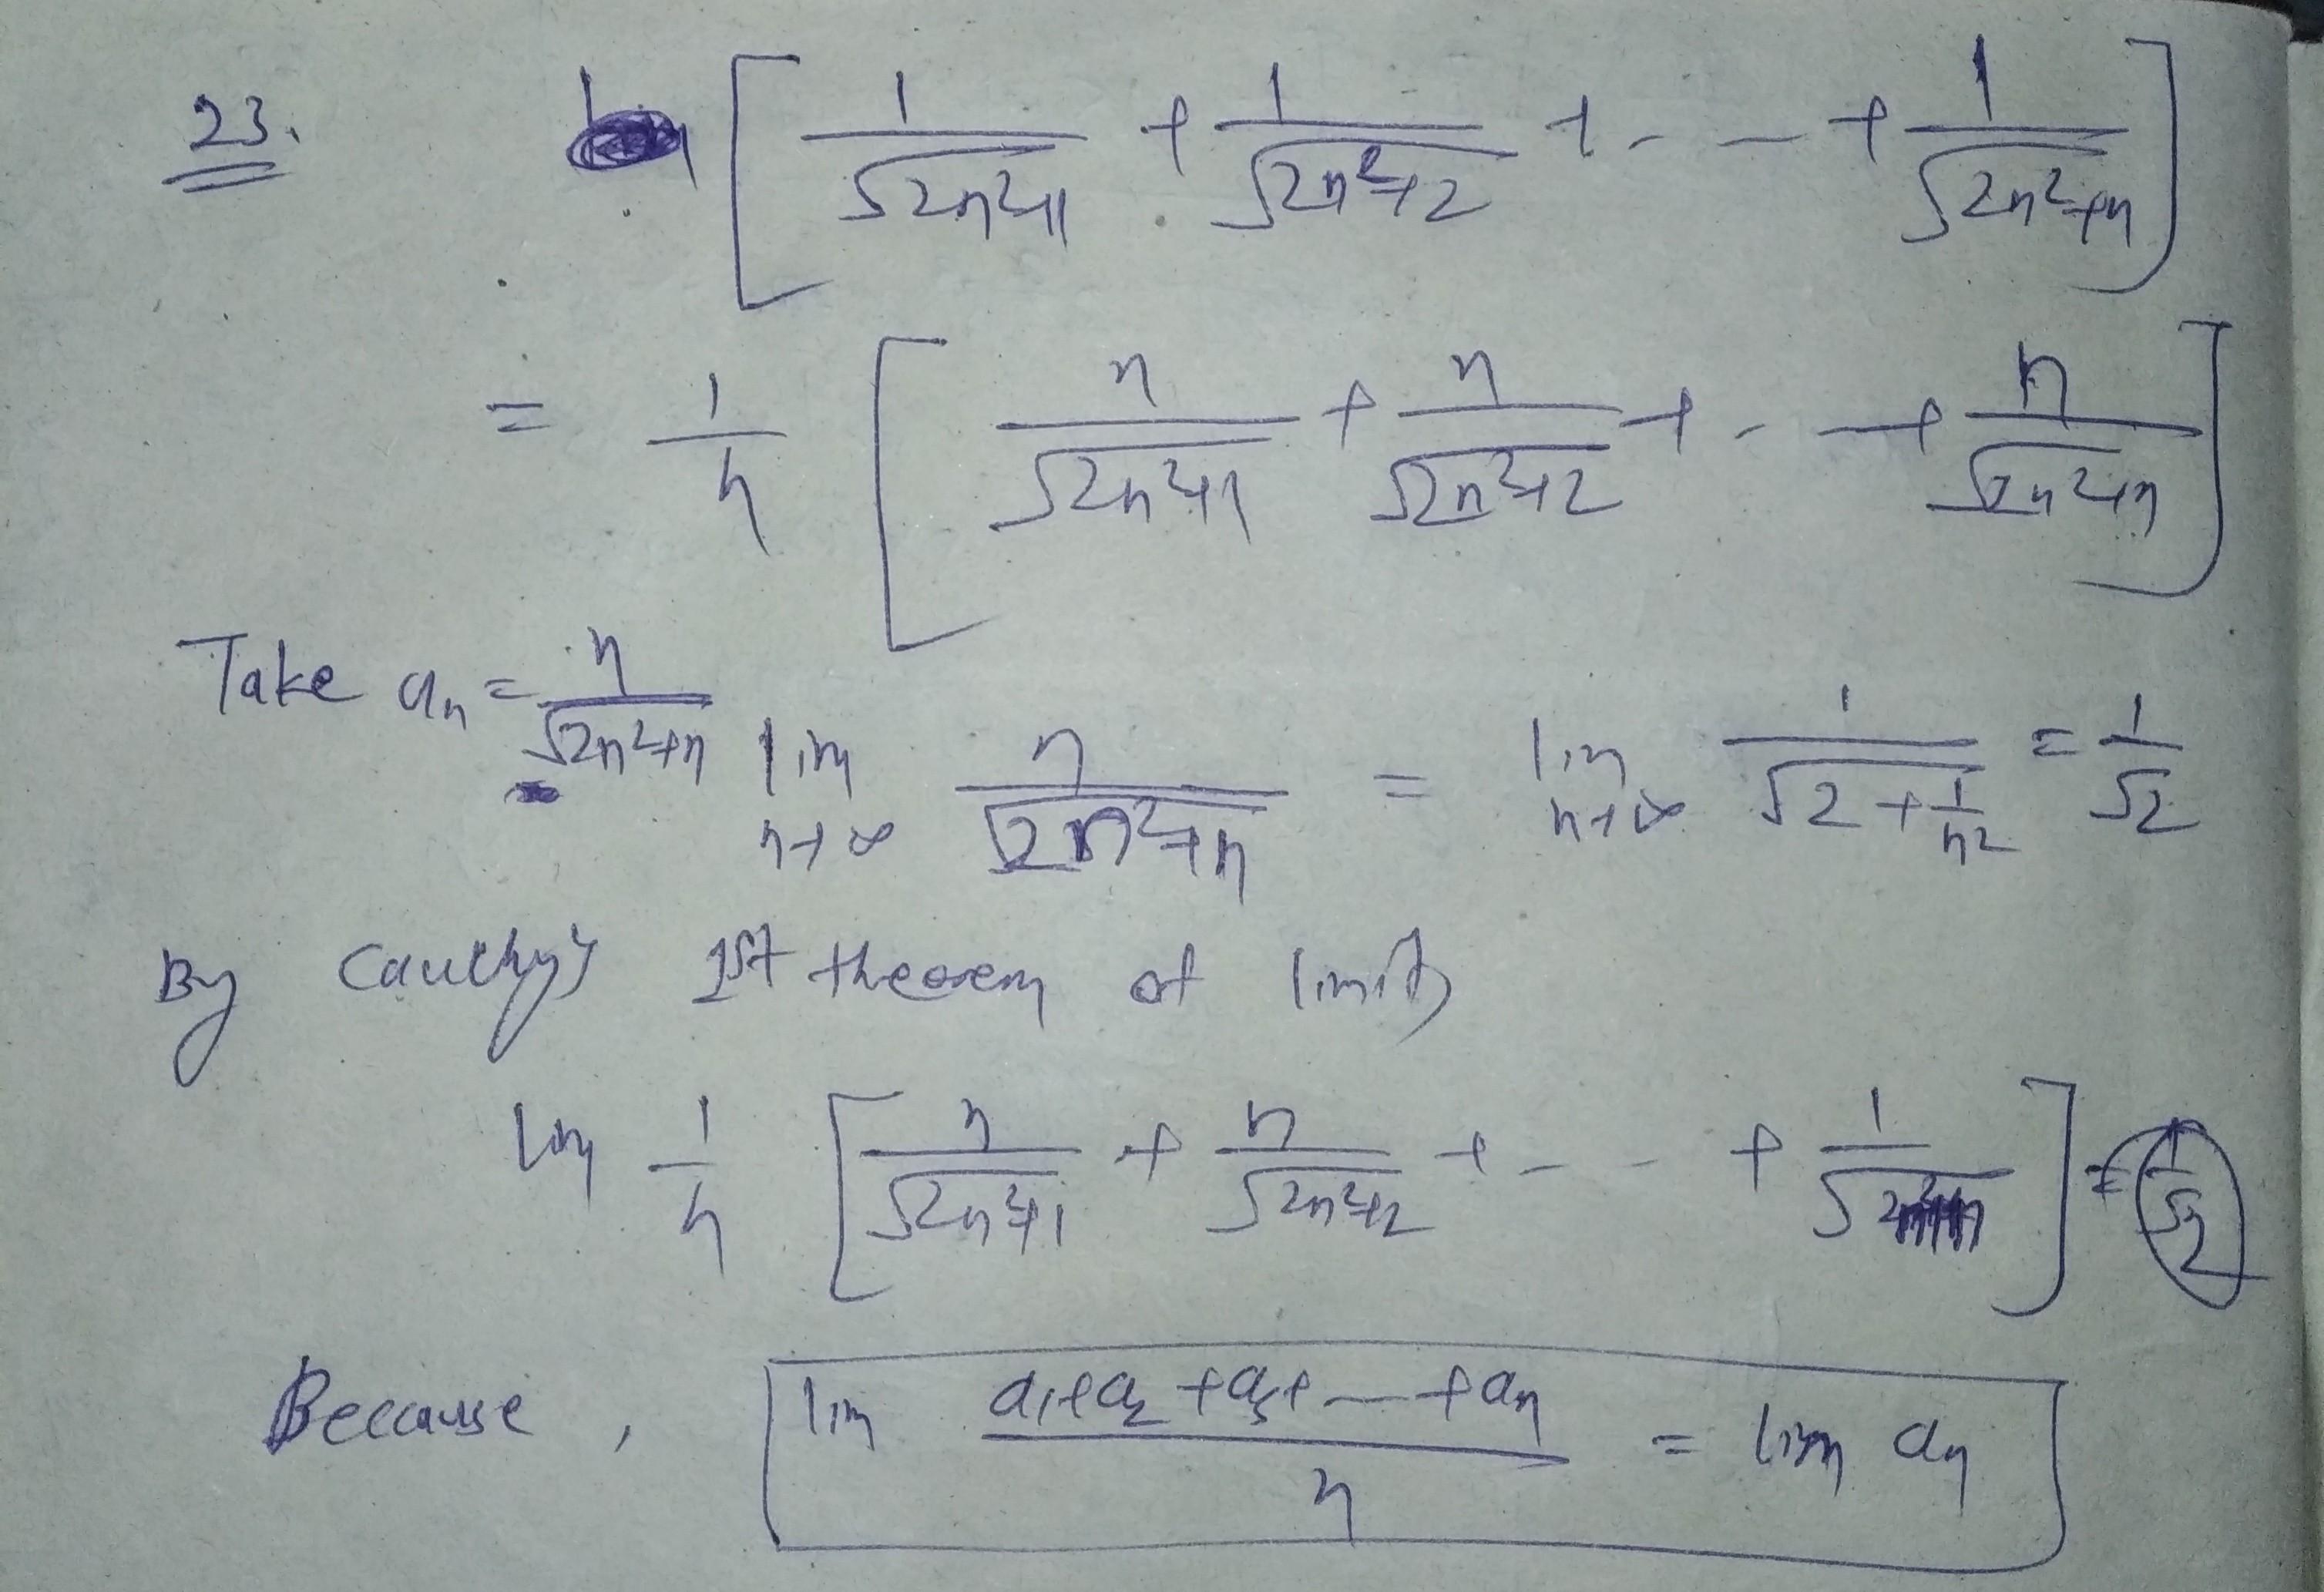 23. [1/√(2n²+1) + 1/√(2n²+2) + - - + 1/√(2n²+n)]
= 1/n [n/√(2n²+1) + n/√(2n²+2) + - - + n/√(2n²+n)]
Take aₙ = n/√(2n²+n) lim n→∞ n/√(2n²+n) = lim n→∞ 1/√(2 + 1/n²) = 1/√2
By Cauchy's 1st theorem of limits
lim 1/n [n/√(2n²+1) + n/√(2n²+2) + - - + 1/√ ] = 1/√2
Because , lim (a₁+a₂+a₃+ - +aₙ)/n = lim aₙ